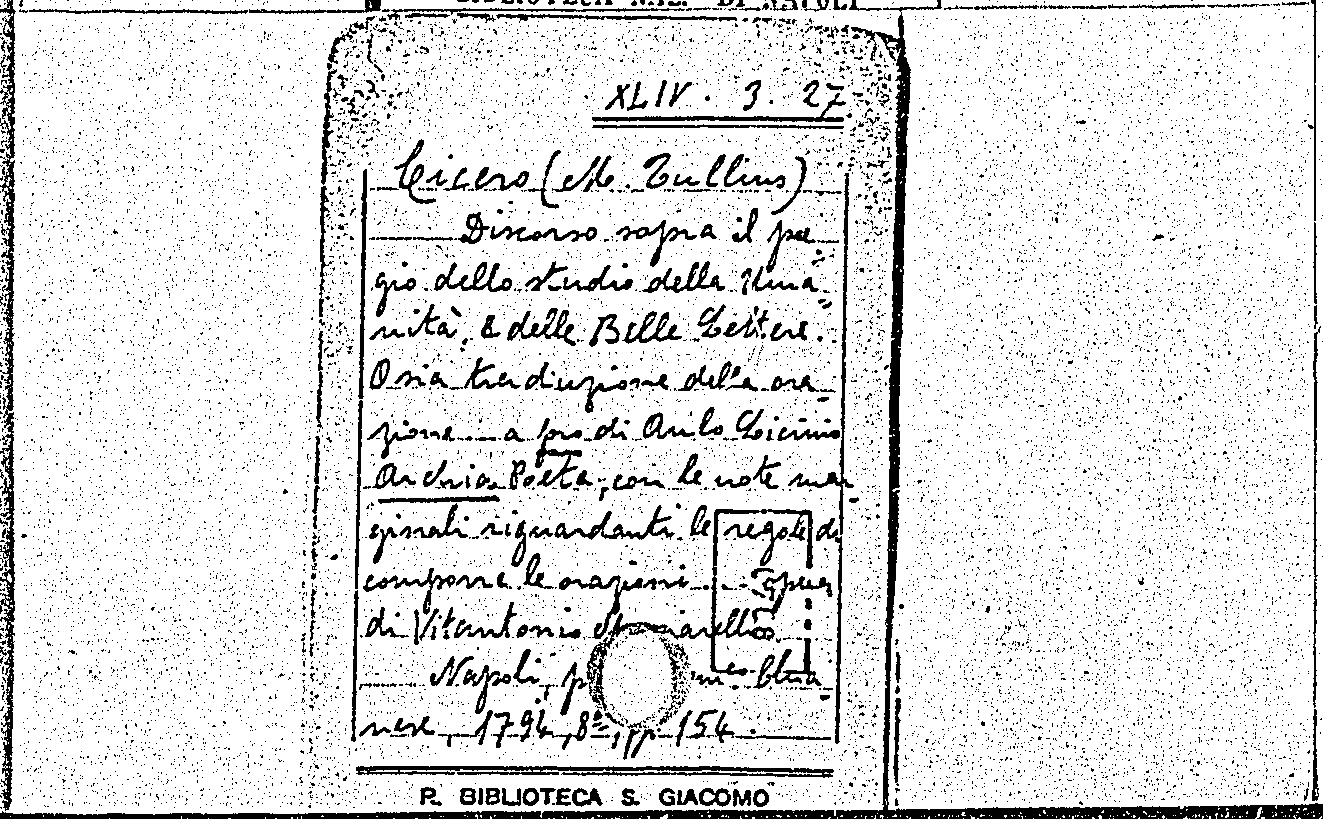 BIBLIOTECA NAZ. DI NAPOLI
XLIV. 3. 27
Cicero (M. Tullius)
Discorso sopra il pre-
gio dello studio della Uma-
nità, e delle Belle Lettere.
Osia traduzione della ora-
zione ... a pro di Aulo Licinio
Archia Poeta, con le note mar-
ginali riguardanti le regole di
comporre le orazioni ... Opera
di Vitantonio
Napoli,
nese, 1794, 8º, pp. 154.
R. BIBLIOTECA S. GIACOMO